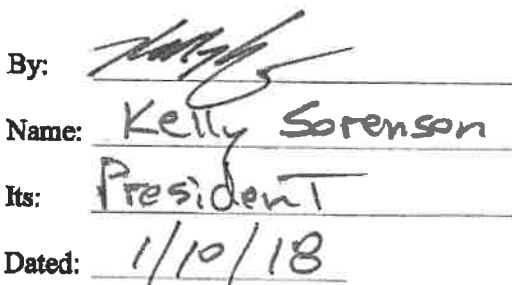 By:
Name: Kelly Sorenson
Its: President
Dated: 1/10/18